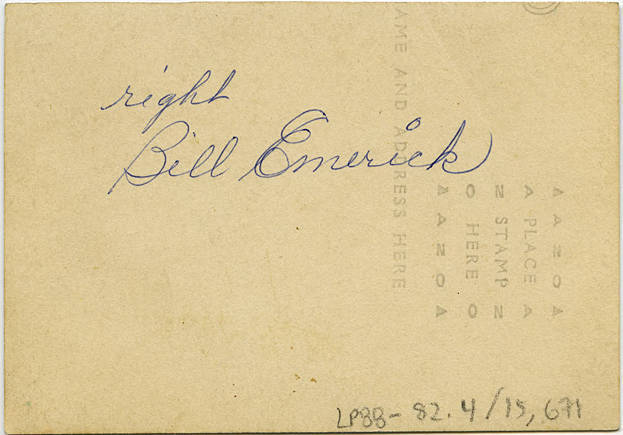 right
Bill Emerick
AME AND ADDRESS HERE
A A Z O A
A PLACE A
Z STAMP Z
O HERE O
A A Z O A
82.4/15,671